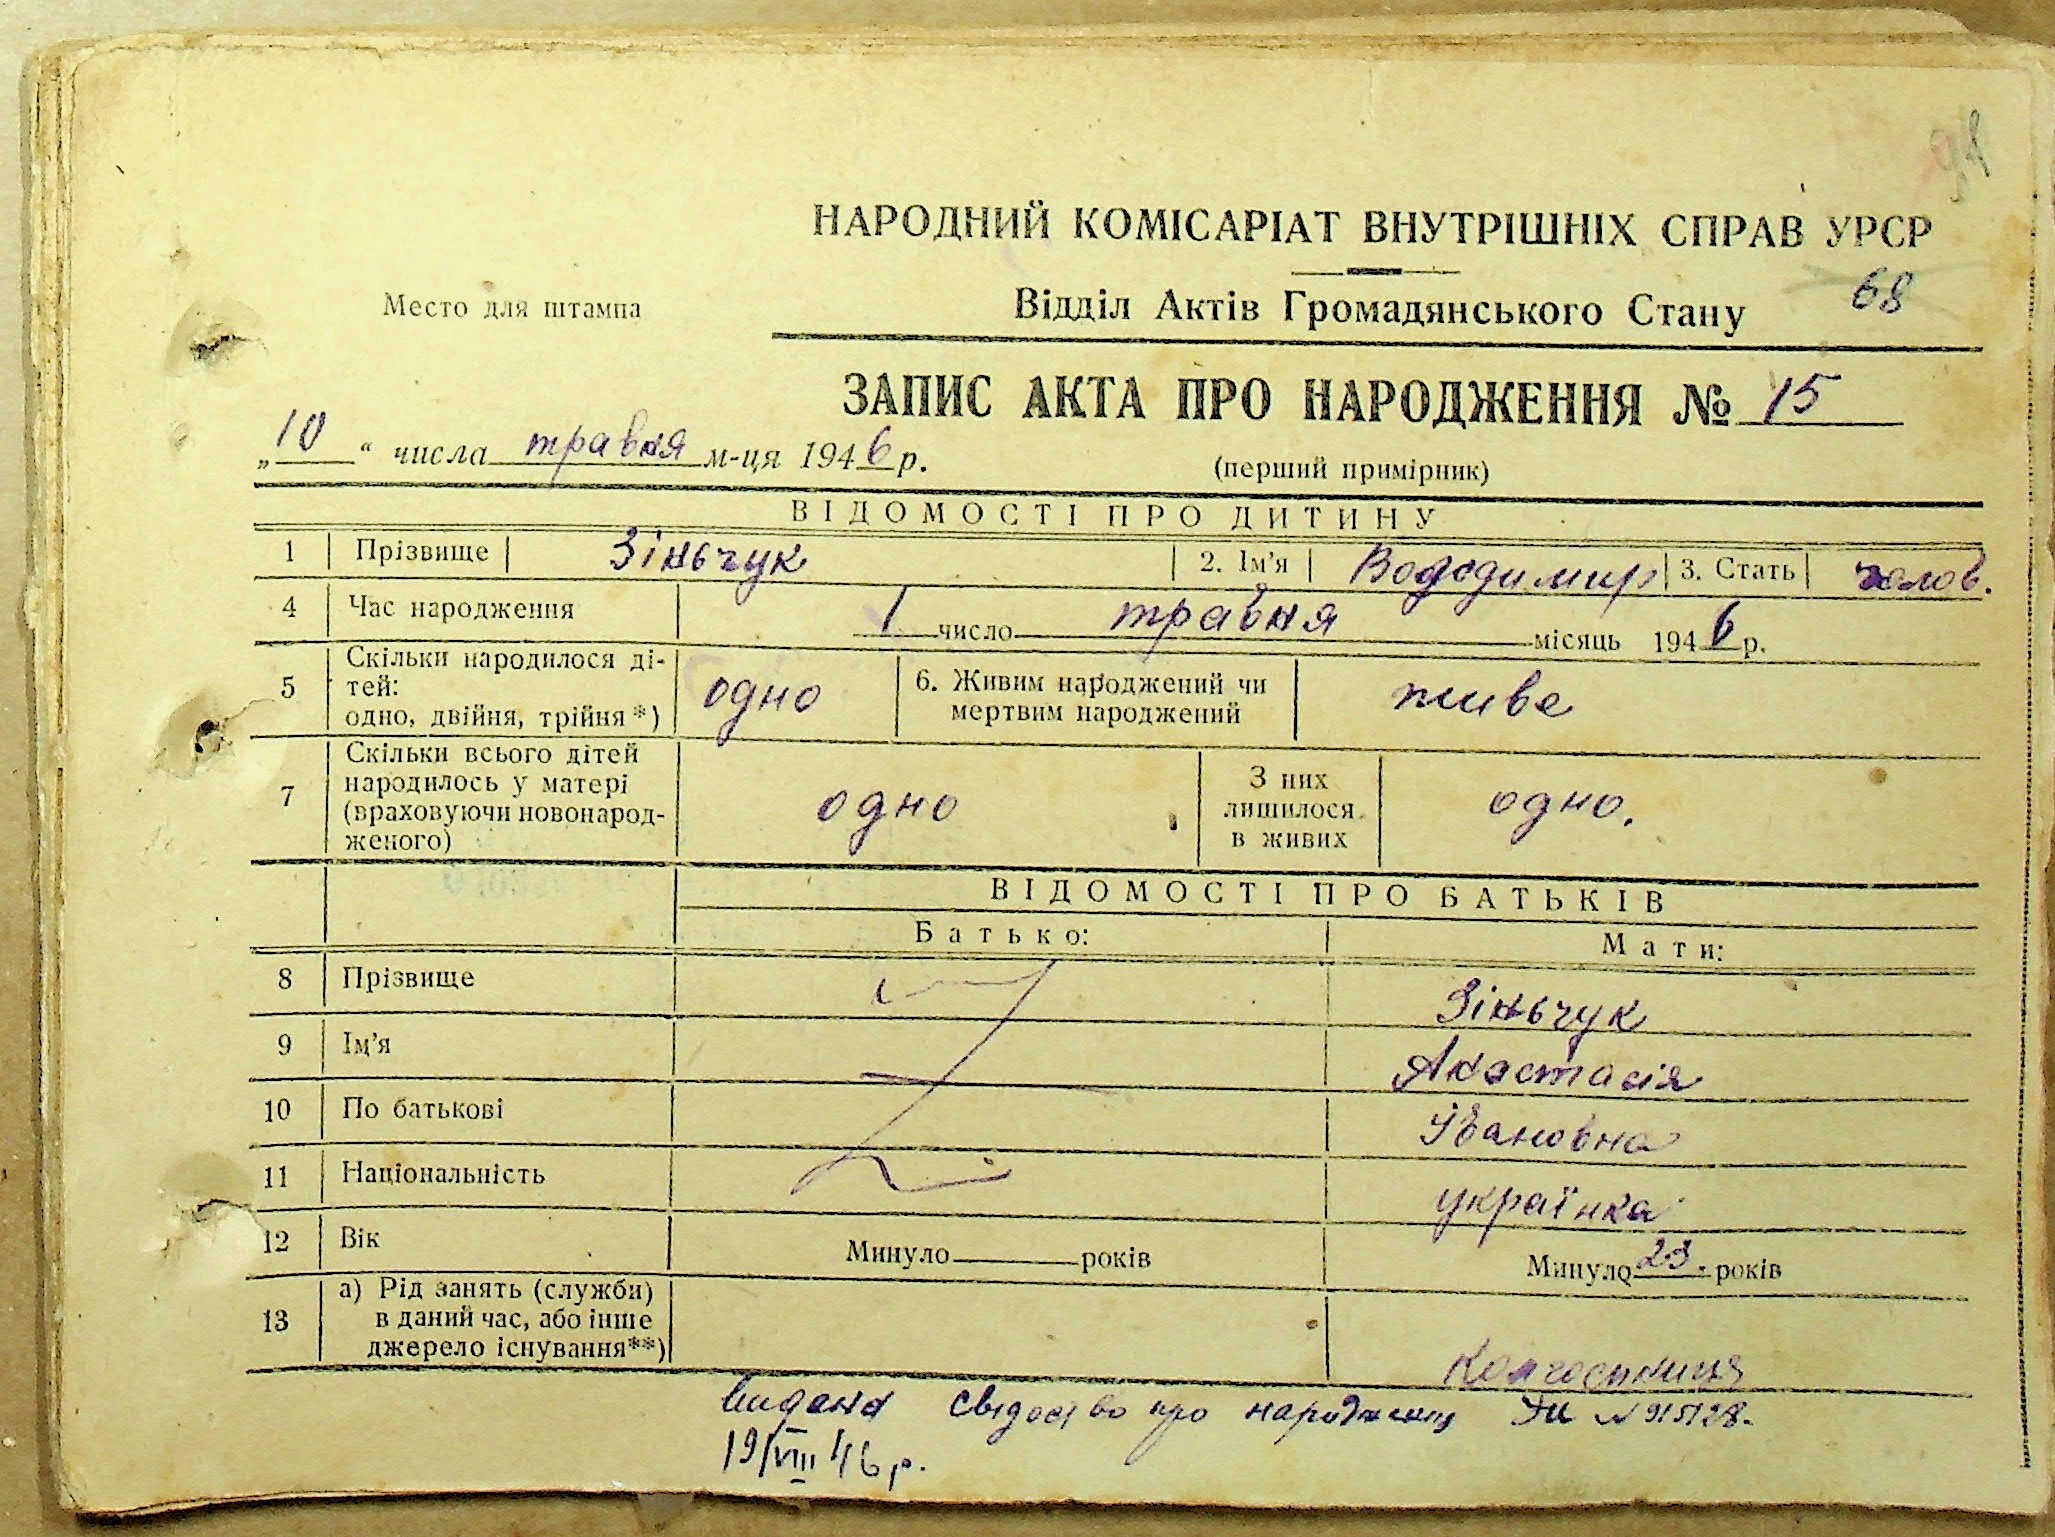 НАРОДНИЙ КОМІСАРІАТ ВНУТРІШНІХ СПРАВ УРСР
Место для штампа
Відділ Актів Громадянського Стану 68
ЗАПИС АКТА ПРО НАРОДЖЕННЯ № 15
„10“ числа травня м-ця 1946 р.
(перший примірник)
ВІДОМОСТІ ПРО ДИТИНУ
1 Прізвище Зіньчук 2. Ім'я Володимир 3. Стать чолов.
4 Час народження 1 число травня місяць 1946 р.
5 Скільки народилося ді-
тей:
одно, двійня, трійня*) одно
6. Живим народжений чи
мертвим народжений живе
7 Скільки всього дітей
народилось у матері
(враховуючи новонарод-
женого) одно
З них
лишилося
в живих одно.
ВІДОМОСТІ ПРО БАТЬКІВ
Батько: Мати:
8 Прізвище Зіньчук
9 Ім'я Анастасія
10 По батькові Івановна
11 Національність українка
12 Вік Минуло років Минуло 23. років
13 а) Рід занять (служби)
в даний час, або інше
джерело існування**) Колгоспниця
видана свідоство про народження N 915728.
19/VIII 46 р.